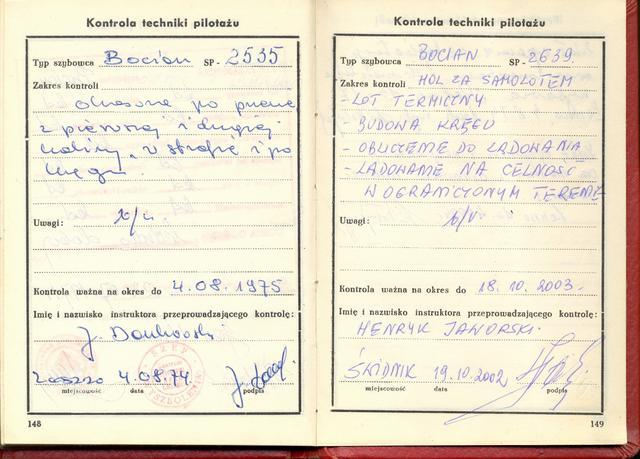 Kontrola techniki pilotażu
Typ szybowca Bocian SP - 2535
Zakres kontroli
Okresowa po
z pierwszej i drugiej
i po
Uwagi: b/u.
Kontrola ważna na okres do 4.08.1975
Imię i nazwisko instruktora przeprowadzającego kontrolę:
J.
Leszno 4.08.74.
miejscowość data podpis
148
Kontrola techniki pilotażu
Typ szybowca BOCIAN SP - 2639.
Zakres kontroli HOL ZA SAMOLOTEM
- LOT TERMICZNY
BUDOWA KRĘGU
- OBLICZENIE DO LĄDOWANIA
- LĄDOWANIE NA CELNOŚĆ
W OGRANICZONYM TERENIE
Uwagi: b/u
Kontrola ważna na okres do 18.10.2003.
Imię i nazwisko instruktora przeprowadzającego kontrolę:
HENRYK JAWORSKI.
ŚWIDNIK 19.10.2002
miejscowość data podpis
149